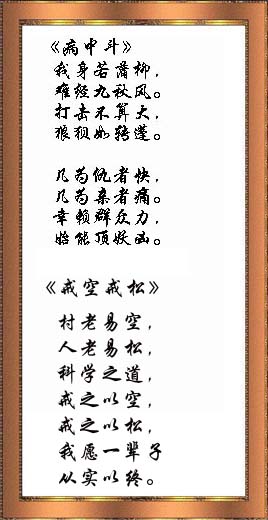 《病中斗》
我身若蒲柳，
难经九秋风。
打击不算大，
狼狈如转蓬。
几为仇者快，
几为亲者痛。
幸赖群众力，
始能顶妖凶。
《戒空戒松》
村老易空，
人老易松，
科学之道，
戒之以空，
戒之以松，
我愿一辈子
从实以终。